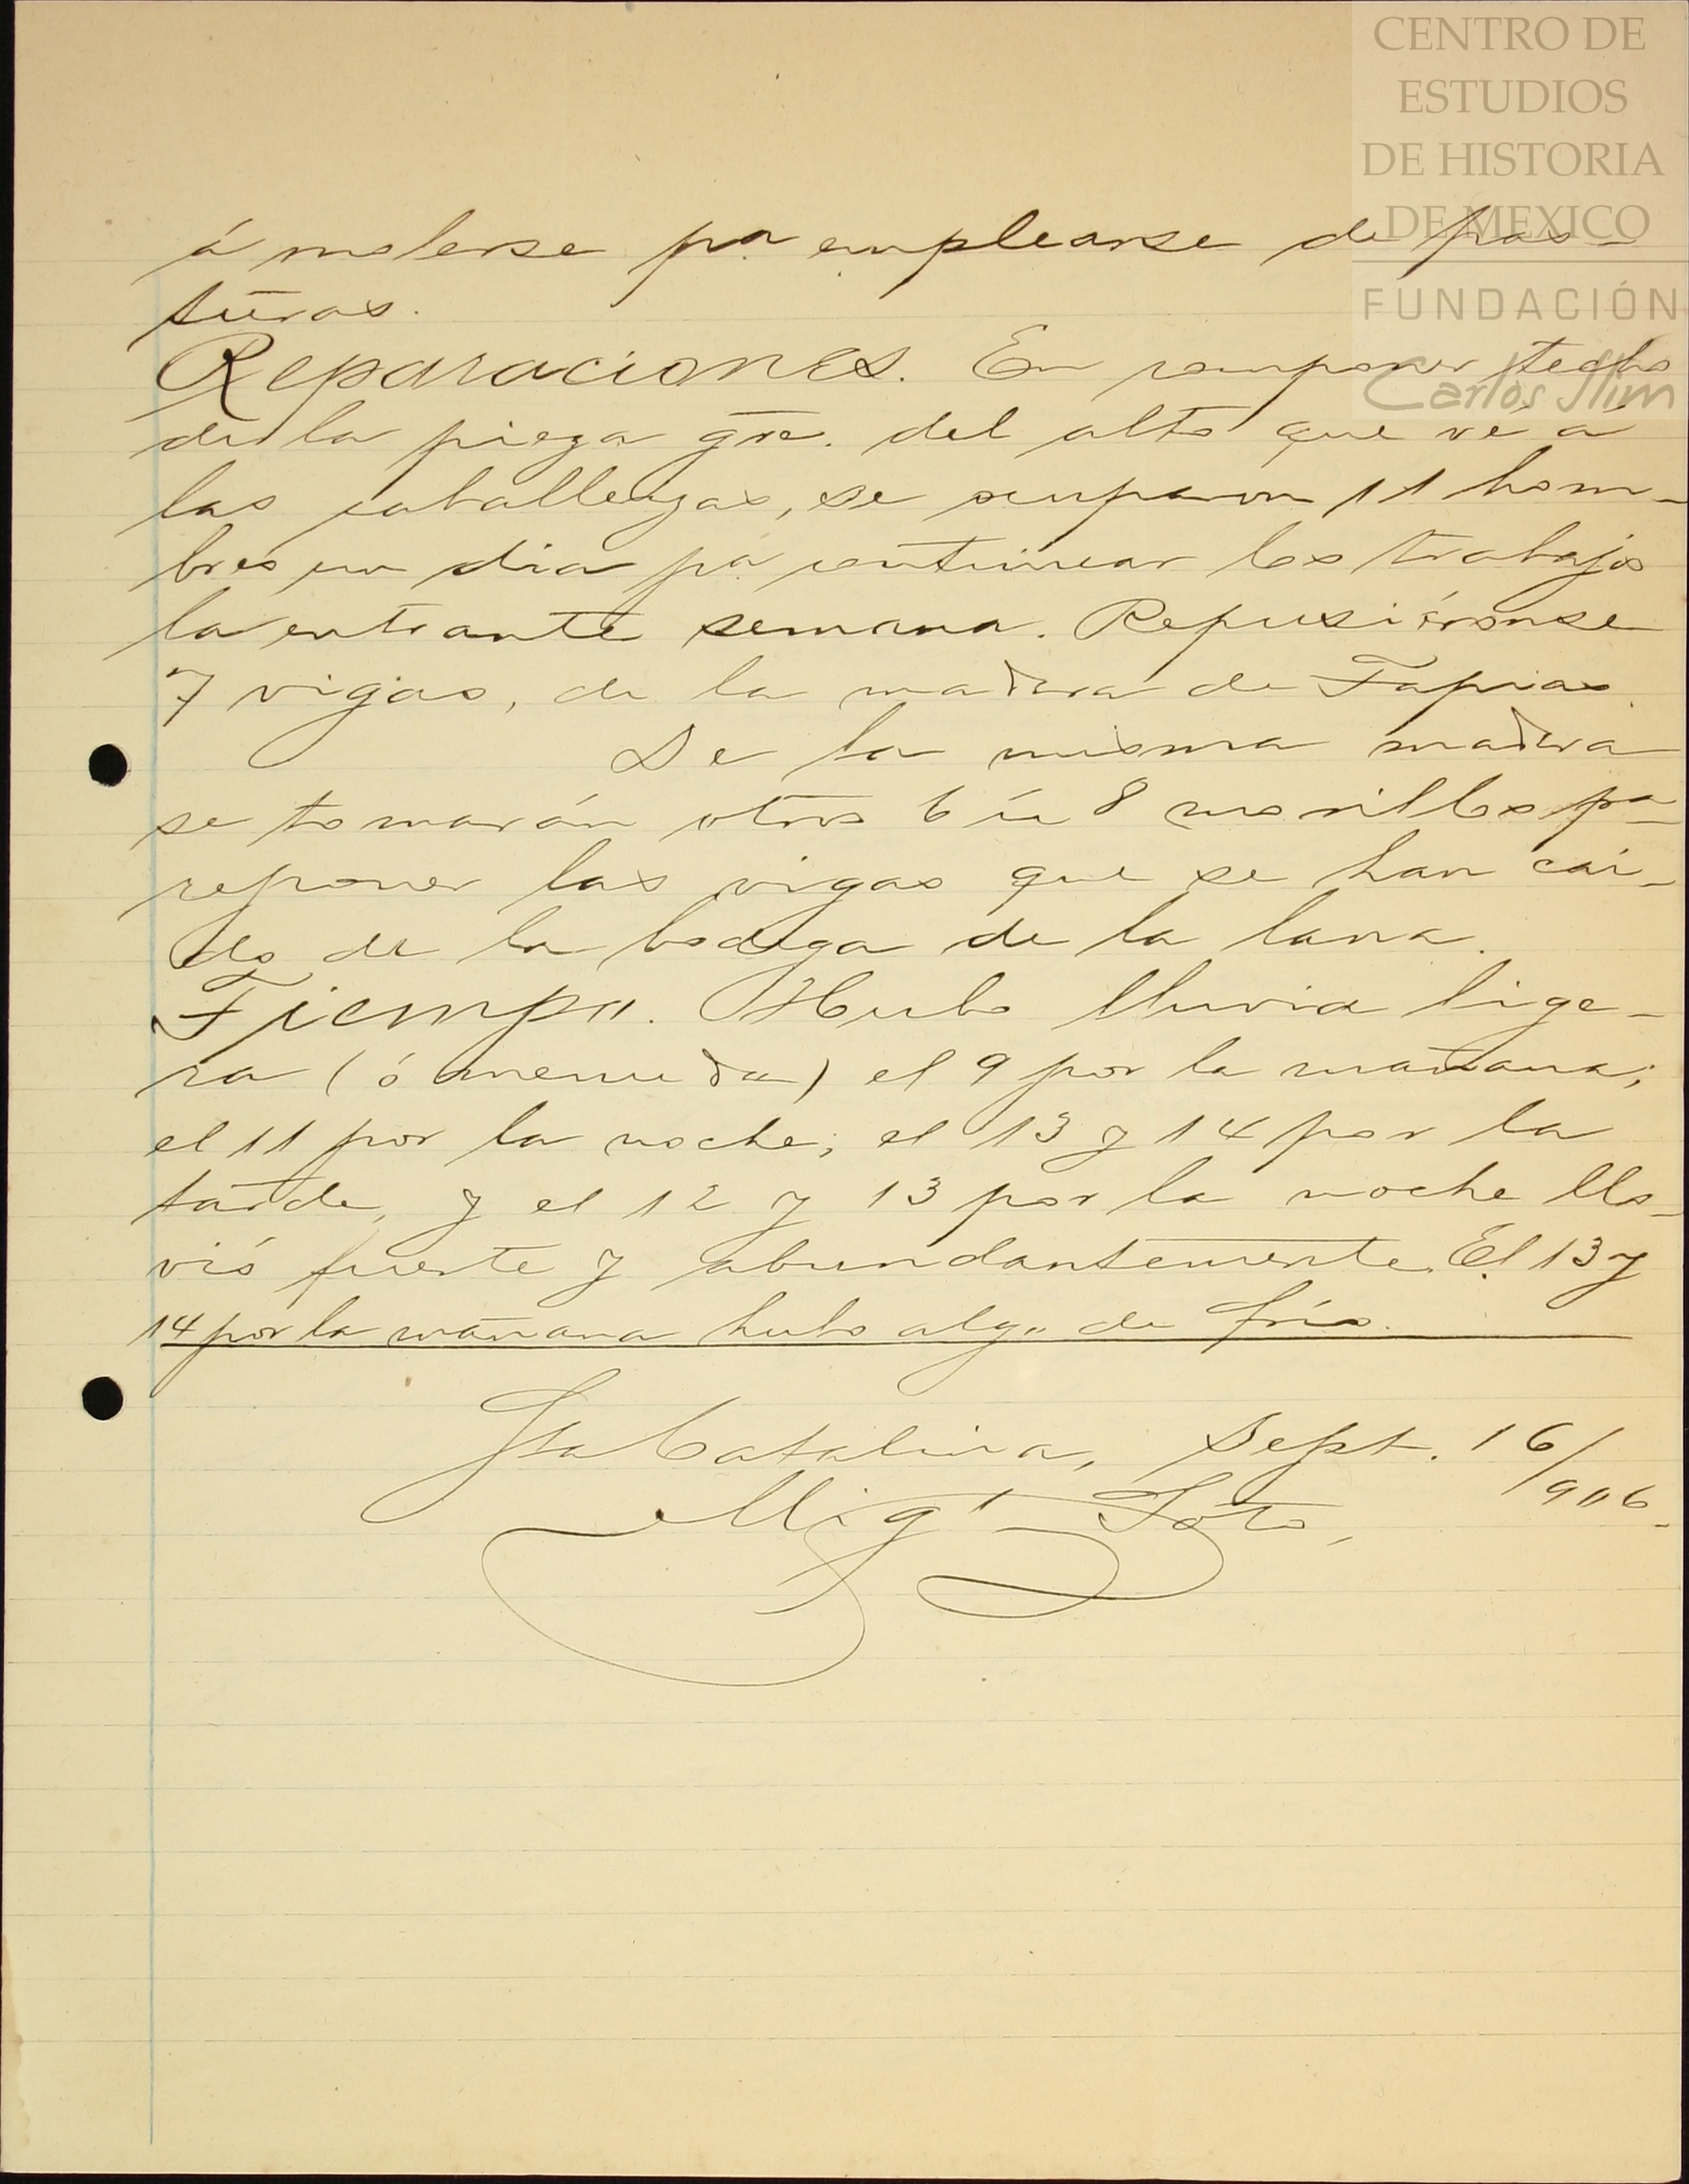 CENTRO DE
ESTUDIOS
DE HISTORIA
DE MEXICO
FUNDACIÓN
Carlos Slim
á molerse pa. emplearse de pas-
turas.
Reparaciones. En componer techo
de la pieza gre. del alto que vé á
las caballerizas, se ocuparon 11 hom-
bres un dia pa. continuar los trabajos
la entrante semana. Repusiéronse
7 vigas, de la madera de Tapias.
De la misma madera
se tomarán otros 6 ú 8 morillos pa
reponer las vigas que se han caí-
do de la bodega de la lana.
Tiempo. Hubo lluvia lige-
ra (ó menuda) el 9 por la mañana;
el 11 por la noche; el 13 y 14 por la
tarde, y el 12 y 13 por la noche llo-
vió fuerte y abundantemente. El 13 y
14 por la mañana hubo algo de frío.
Sta Catalina, Sept. 16/906.
Migl Soto.